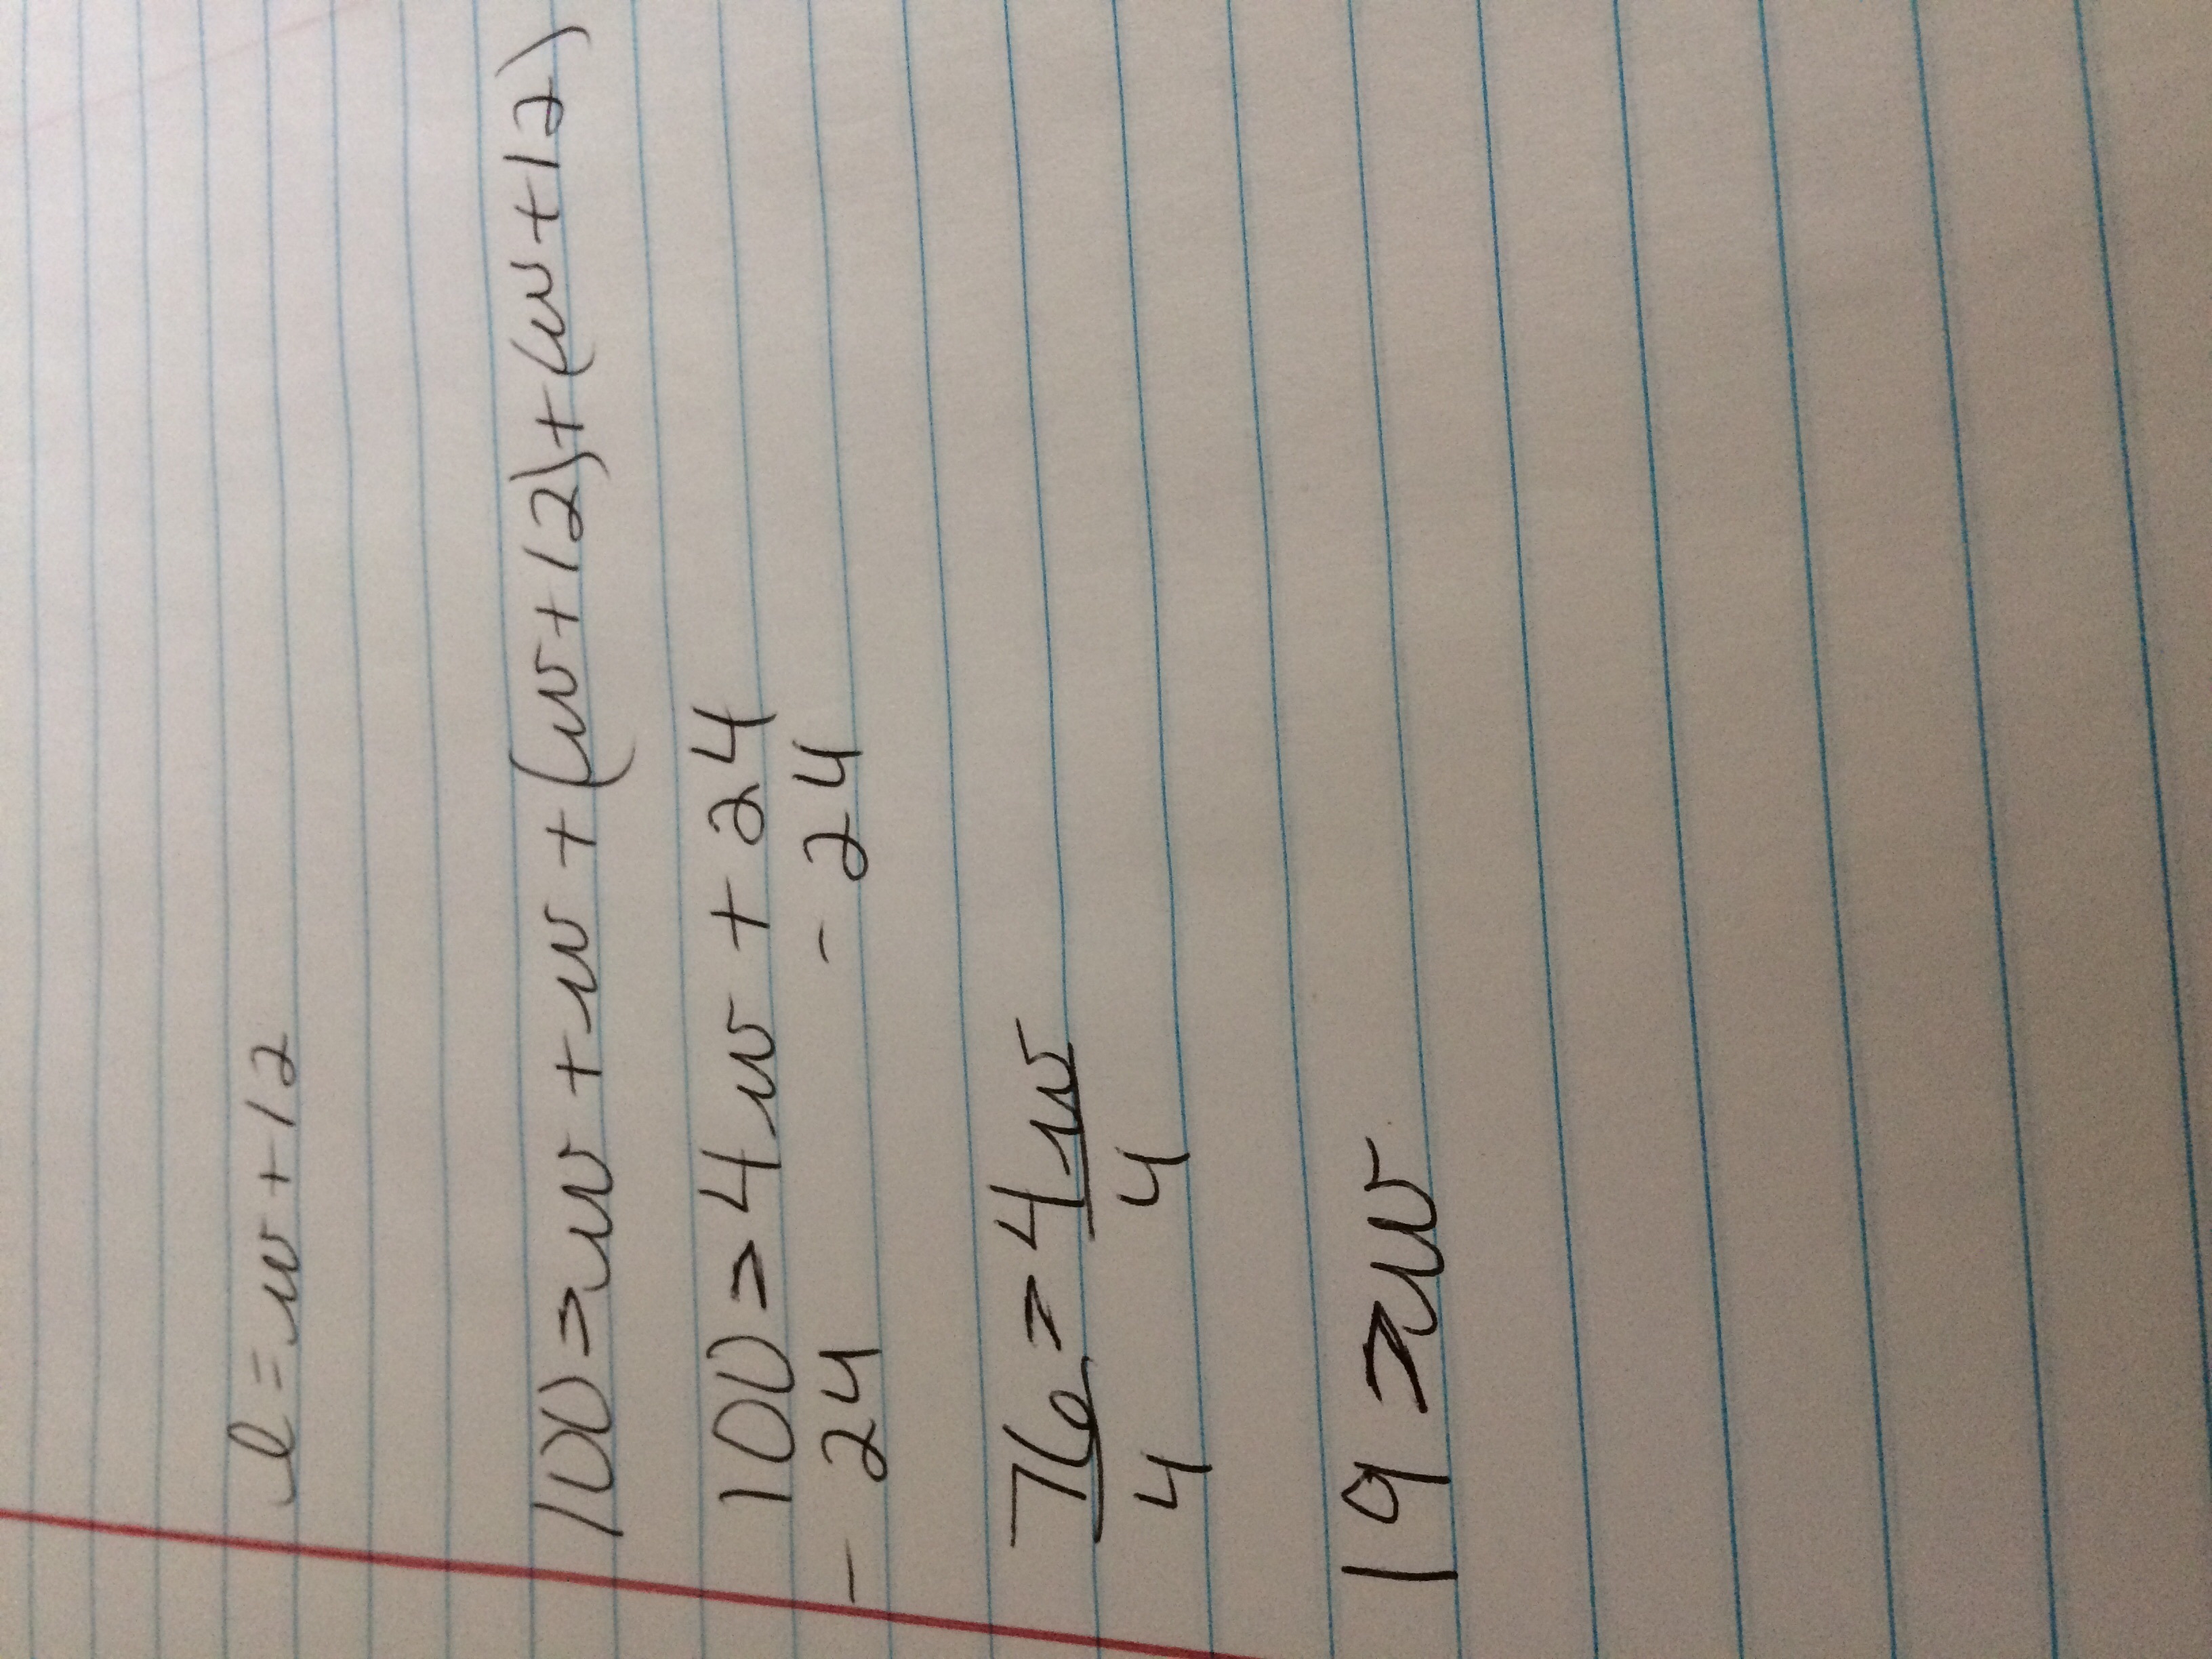 l = w + 12
100 > w + w + (w + 12) + (w + 12)
100 > 4w + 24
- 24 - 24
76 > 4w
4 4
19 > w